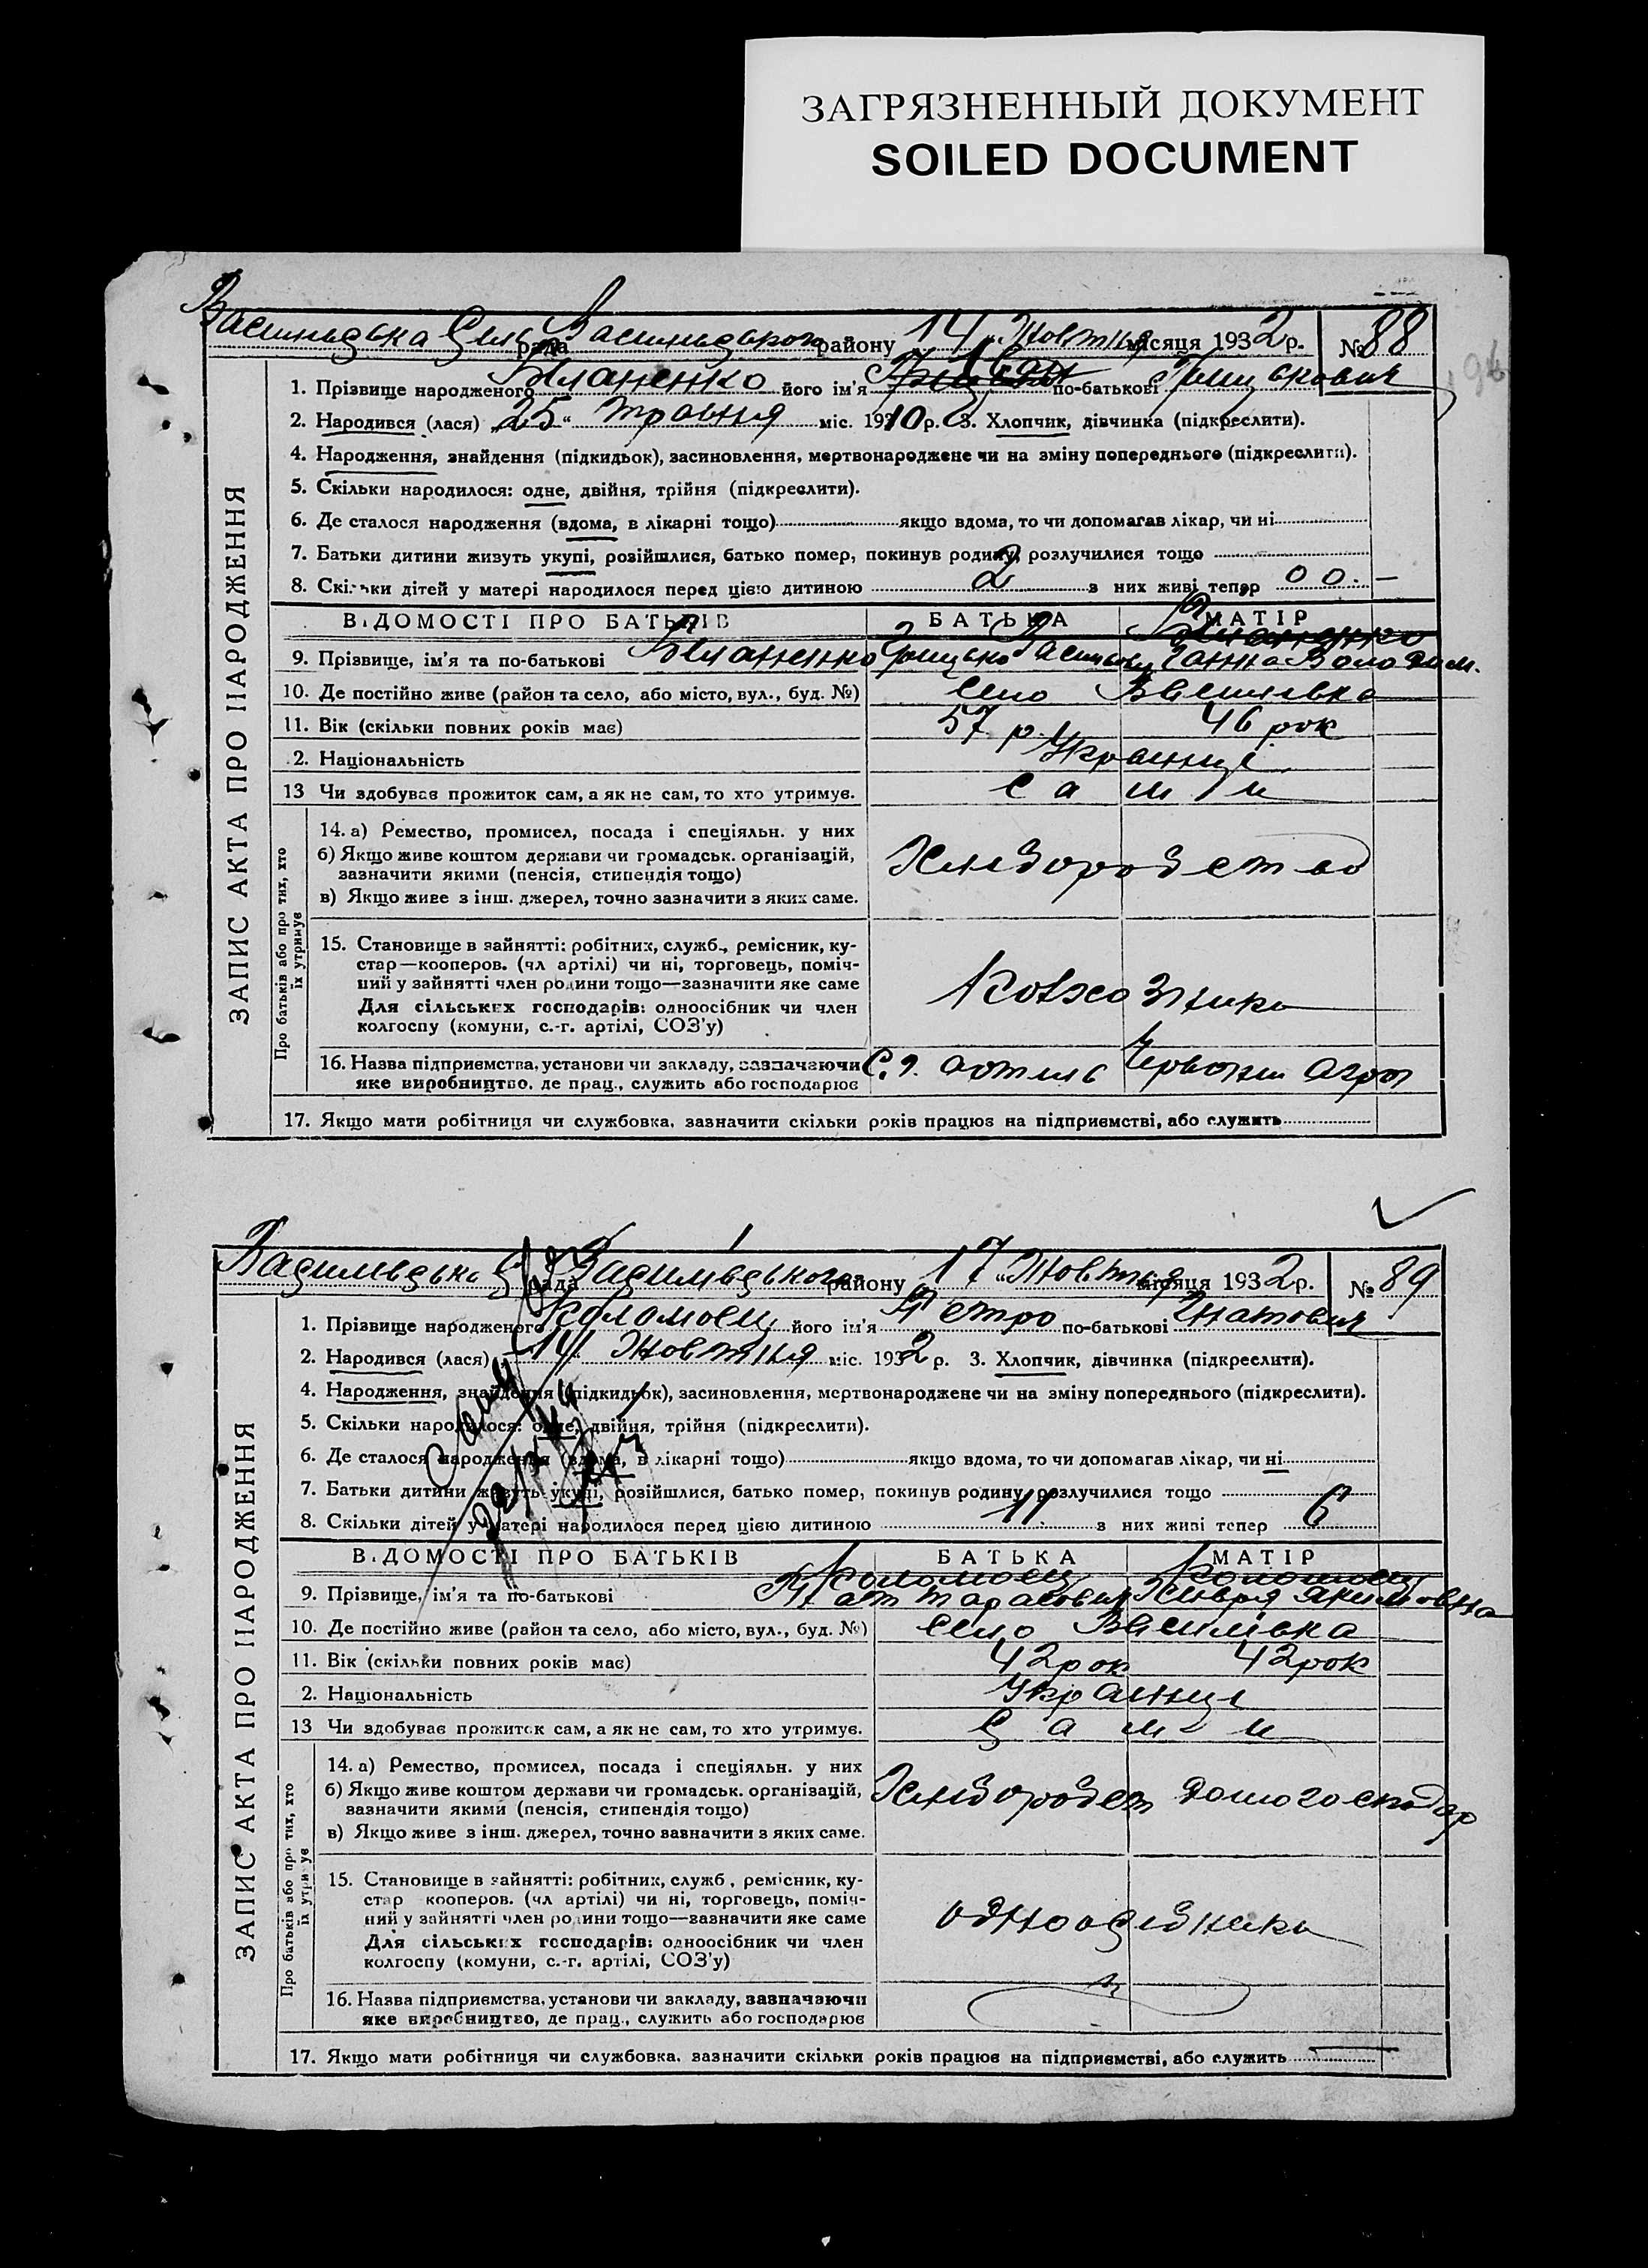 ЗАГРЯЗНЕННЫЙ ДОКУМЕНТ
SOILED DOCUMENT
Василівська рада Василівського району 14 Жовтня місяця 1932 р. № 88
ЗАПИС АКТА ПРО НАРОДЖЕННЯ
1. Прізвище народженого його ім'я Іван по-батькові
2. Народився (лася) „25“ травня міс. 1910 р. 3. Хлопчик, дівчинка (підкреслити).
4. Народження, знайдення (підкидьок), засиновлення, мертвонароджене чи на зміну попереднього (підкреслити).
5. Скільки народилося: одне, двійня, трійня (підкреслити).
6. Де сталося народження (вдома, в лікарні тощо) якщо вдома, то чи допомагав лікар, чи ні
7. Батьки дитини живуть укупі, розійшлися, батько помер, покинув родину, розлучилися тощо
8. Скільки дітей у матері народилося перед цією дитиною 2 з них живі тепер 0 0. —
ВІДОМОСТІ ПРО БАТЬКІВ БАТЬКА МАТІР
9. Прізвище, ім'я та по-батькові Ганна Володим.
10. Де постійно живе (район та село, або місто, вул., буд. №) село Василівка
11. Вік (скільки повних років має) 57 р. 46 рок
2. Національність Українці
13 Чи здобував прожиток сам, а як не сам, то хто утримує. сами
Про батьків або про тих, хто їх утримує
14. а) Ремество, промисел, посада і спеціяльн. у них
б) Якщо живе коштом держави чи громадськ. організацій,
зазначити якими (пенсія, стипендія тощо) Хліборобство
в) Якщо живе з інш. джерел, точно зазначити з яких саме.
15. Становище в зайнятті: робітник, служб., ремісник, ку-
стар—кооперов. (чл артілі) чи ні, торговець, поміч-
ний у зайнятті член родини тощо—зазначити яке саме
Для сільських господарів: одноосібник чи член
колгоспу (комуни, с.-г. артілі, СОЗ'у)
16. Назва підприємства, установи чи закладу, зазначаючи С.г. артиль Червони
яке виробництво, де прац., служить або господарює
17. Якщо мати робітниця чи службовка, зазначити скільки років працює на підприємстві, або служить
Василівська рада Василівського району 17 Жовтня місяця 1932 р. № 89
ЗАПИС АКТА ПРО НАРОДЖЕННЯ
1. Прізвище народженого Коломоец його ім'я Петро по-батькові Гнатович
2. Народився (лася) 14 Жовтня міс. 1932 р. 3. Хлопчик, дівчинка (підкреслити).
4. Народження, знайдення (підкидьок), засиновлення, мертвонароджене чи на зміну попереднього (підкреслити).
5. Скільки народилося: одне, двійня, трійня (підкреслити).
6. Де сталося народження (вдома, в лікарні тощо) якщо вдома, то чи допомагав лікар, чи ні
7. Батьки дитини живуть укупі, розійшлися, батько помер, покинув родину, розлучилися тощо
8. Скільки дітей у матері народилося перед цією дитиною 11 з них живі тепер 6
ВІДОМОСТІ ПРО БАТЬКІВ БАТЬКА МАТІР
Коломоец Коломоец
9. Прізвище, ім'я та по-батькові Гнат Тарасович Якимовна
10. Де постійно живе (район та село, або місто, вул., буд. №) село Василівка
11. Вік (скільки повних років має) 42 рок 42 рок
2. Національність Українці
13 Чи здобував прожиток сам, а як не сам, то хто утримує. сами
Про батьків або про тих, хто їх утримує
14. а) Ремество, промисел, посада і спеціяльн. у них
б) Якщо живе коштом держави чи громадськ. організацій, Хлібороб домогосподар
зазначити якими (пенсія, стипендія тощо)
в) Якщо живе з інш. джерел, точно зазначити з яких саме.
15. Становище в зайнятті: робітник, служб., ремісник, ку-
стар кооперов. (чл артілі) чи ні, торговець, поміч-
ний у зайнятті член родини тощо—зазначити яке саме
Для сільських господарів: одноосібник чи член
колгоспу (комуни, с.-г. артілі, СОЗ'у)
16. Назва підприємства, установи чи закладу, зазначаючи
яке виробництво, де прац., служить або господарює
17. Якщо мати робітниця чи службовка, зазначити скільки років працює на підприємстві, або служить —